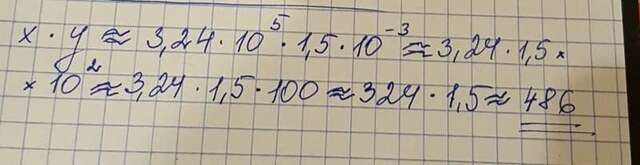 x · y ≈ 3,24 · 10⁵ · 1,5 · 10⁻³ ≈ 3,24 · 1,5 ×
× 10² ≈ 3,24 · 1,5 · 100 ≈ 324 · 1,5 ≈ 486